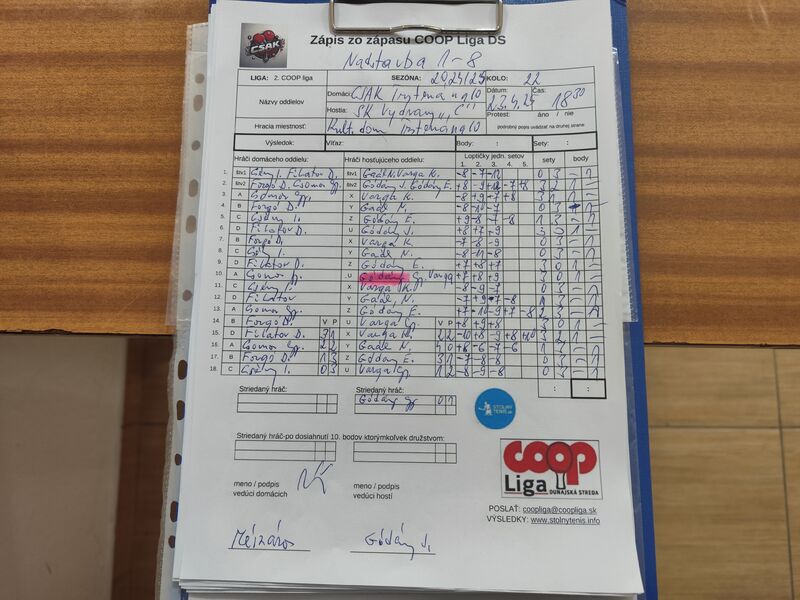 CSAK
Zápis zo zápasu COOP Liga DS
Nadstavba 1-8
LIGA: 2. COOP liga SEZÓNA: 2024/25 KOLO: 22
Názvy oddielov Domáci: CSAK Trstená n/O Dátum: 23.4.25 Čas: 18 30
Hostia: SK Vydrany "C" Protest: áno / nie
Hracia miestnosť: Kult. dom Trstená n/O podrobný popis uvádzať na druhej strane:
Výsledok: : Víťaz: Body: : Sety: :
Hráči domáceho oddielu: Hráči hosťujúceho oddielu: Loptičky jedn. setov sety body
1. 2. 3. 4. 5.
1. štv1 Csény I. Filator D. štv1 Gaál N. Varga K. -8 -7 -12 0 3 - 1
2. štv2 Forgó D. Csomor Gy. štv2 Gódány J. Gódány E.
3. A Varga K.
4. B Forgó D. Y Gaál N. -8 -10 -7 0 3
5. C Csény I. Z Gódány E. +9 -8 -7 -8 1 3 - 1
6. D Filator D. U Gódány J. +8 +7 +9
7. B Forgó D. X Varga K. -7 -8 -9 0 3 - 1
8. C Csény I. Y Gaál N. -8 -11 -8 0 3 - 1
9. D Filator D. Z Gódány E. +7 +8 +7 3 0 1 -
10. A U Gódány Gy. Varga +7 +8 +9 3 0 1 -
11. C Csény I. X Varga K. -8 -9 -7 0 3 - 1
12. D Filator Y Gaál N. -7 +9 -7 -8 1 3 - 1
13. A Z Gódány E. +7 -10 -9 +7 -8 2 3 - 1
14. B Forgó D. V P U Varga Gy. V P +8 +9 +8 3 0 1 -
15. D Filator D. 3 1 X Varga K. 2 2 -10 +8 -9 +8 +10 3 2 1 -
16. A 2 2 Y Gaál N. 4 0 +8 -6 -7 -6 1 3 - 1
17. B Forgó D. 1 3 Z Gódány E. 3 1 -7 -8 -8 0 3 - 1
18. C Csény I. 0 3 U Varga Gy. 1 2 -8 -9 -8 0 3 - 1
: :
Striedaný hráč: Striedaný hráč:
Gódány Gy. 0 1
STOLNÝ
TENIS.sk
Striedaný hráč-po dosiahnutí 10. bodov ktorýmkoľvek družstvom:
meno / podpis meno / podpis
vedúci domácich vedúci hostí
coop
Liga DUNAJSKÁ STREDA
POSLAŤ: coopliga@coopliga.sk
VÝSLEDKY: www.stolnytenis.info
Mészáros Gódány J.